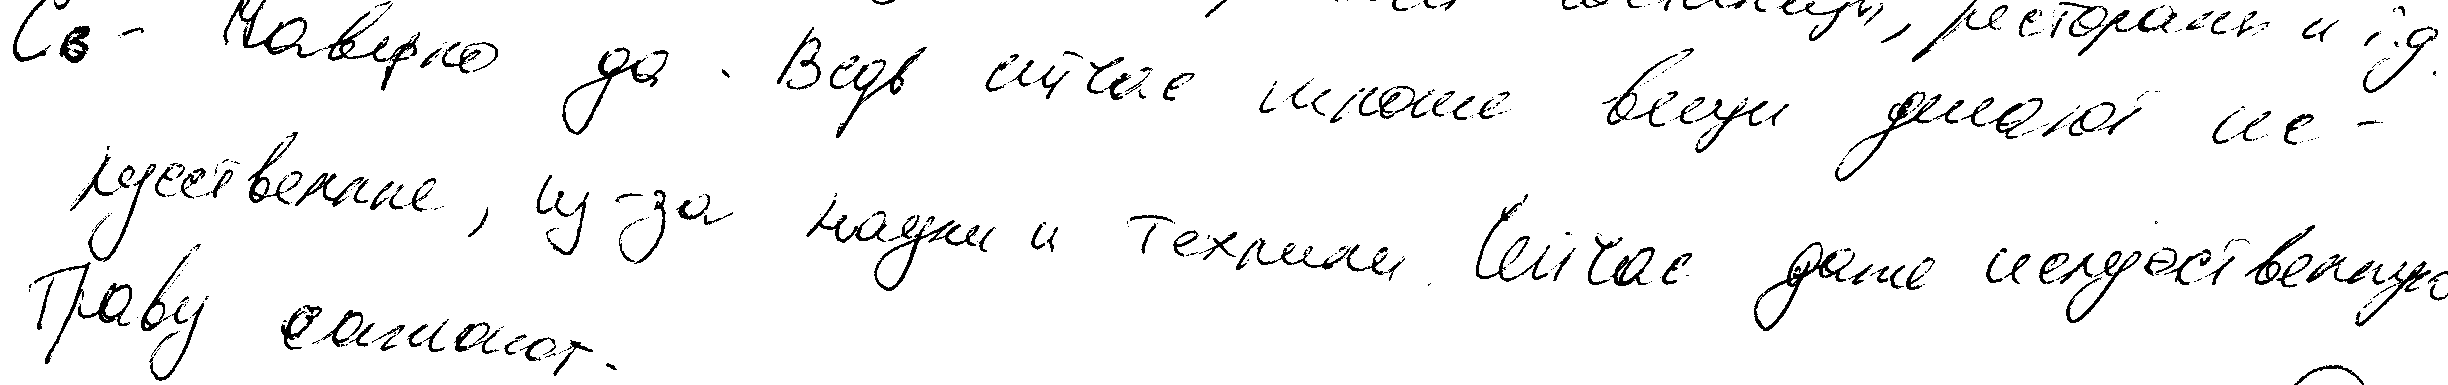 гостиницы, рестораны и т.д.
Св - Наверно да. Ведь сейчас многие вещи делают ис-
кусственные, из-за науки и техники. Сейчас даже искусственную
траву сажают.